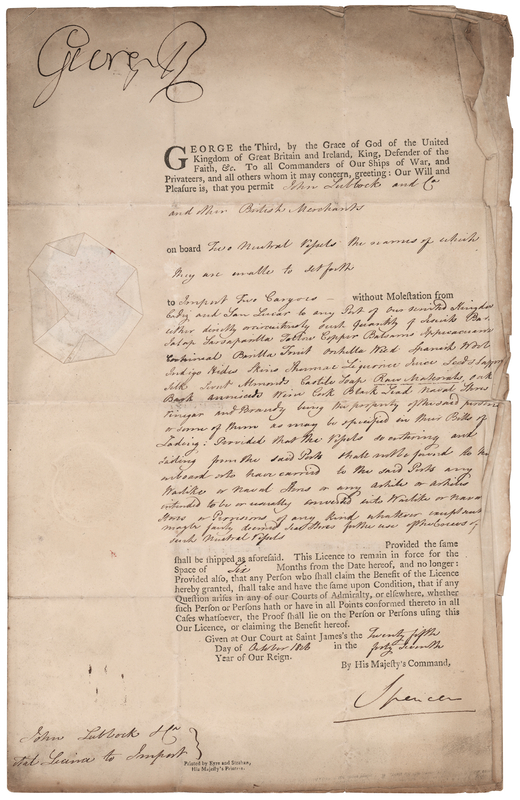 George R
GEORGE the Third, by the Grace of God of the United
Kingdom of Great Britain and Ireland, King, Defender of the
Faith, &c. To all Commanders of Our Ships of War, and
Privateers, and all others whom it may concern, greeting: Our Will and
Pleasure is, that you permit John Lubbock and Co
and other British Merchants
on board Two Neutral Vessels the names of which
they are unable to set forth
to Import Two Cargoes without Molestation from
Cadiz and San Lucar to any Port of our united Kingdom
either directly or circuitously such Quantity of Jesuits Bark
Jalap Sarsaparilla Copper Balsams
Barilla Fruit Orchella Weed Spanish Wool
Indigo Hides Skins Shumac Liquorice Juice Seeds Saffron
Silk Sweet Almonds Castile Soap Raw Materials Oak
Bark Anniseeds Wine Cork Black Lead Naval Stores
Vinegar and Brandy being the property of the said persons
or some of them as may be specified in their Bills of
Lading: Provided that the Vessels so entering and
from the said Ports shall not be found to have
onboard who have carried to the said Ports any
Warlike or Naval Stores or any article or articles
intended to be or usually converted into Warlike or Naval
Stores or Provisions of any kind whatever except such
may be fairly deemed Sea Stores for the use of the Crews of
such Neutral Vessels
Provided the same
shall be shipped as aforesaid. This Licence to remain in force for the
Space of Six Months from the Date hereof, and no longer:
Provided also, that any Person who shall claim the Benefit of the Licence
hereby granted, shall take and have the same upon Condition, that if any
Question arises in any of our Courts of Admiralty, or elsewhere, whether
such Person or Persons hath or have in all Points conformed thereto in all
Cases whatsoever, the Proof shall lie on the Person or Persons using this
Our Licence, or claiming the Benefit hereof.
Given at our Court at Saint James's the Twenty fifth
Day of October 1806 in the forty Seventh
Year of Our Reign.
By His Majesty's Command,
Spencer
John Lubbock & Co
to Import
Printed by Eyre and Strahan,
His Majesty's Printers.